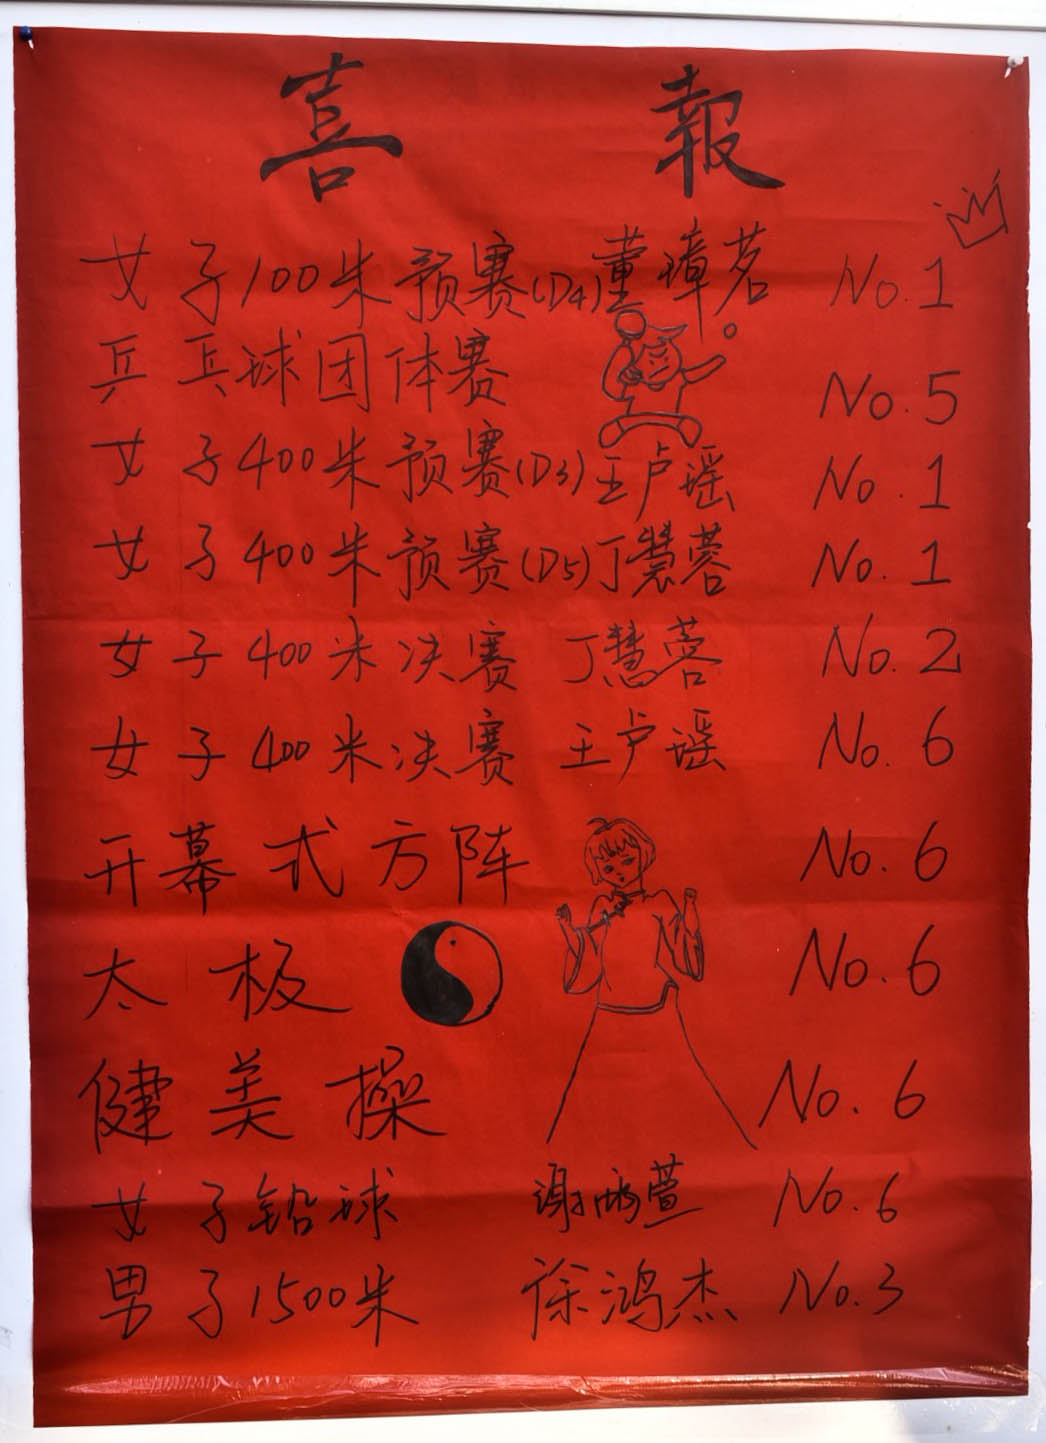 喜報
女子100米预赛(D4)董璋茗 No.1
乒乓球团体赛 No.5
女子400米预赛(D3)王卢瑶 No.1
女子400米预赛(D5)丁慧蓉 No.1
女子400米决赛 丁慧蓉 No.2
女子400米决赛 王卢瑶 No.6
开幕式方阵 No.6
太极 No.6
健美操 No.6
女子铅球 谢萱 No.6
男子1500米 徐鸿杰 No.3